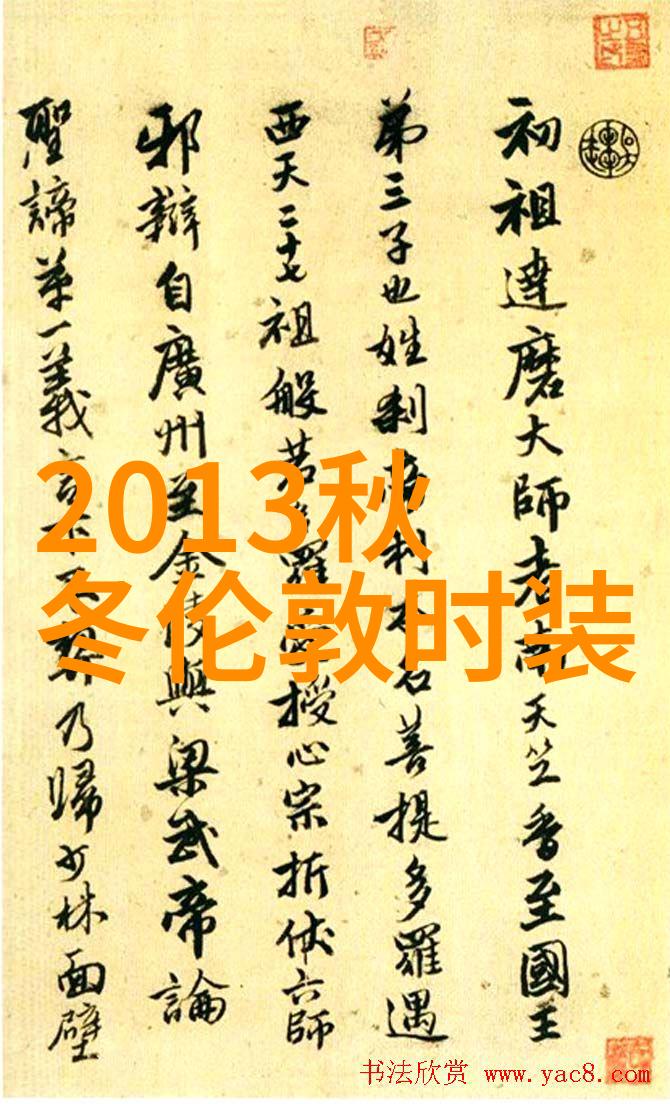 初祖達磨大師者南天竺香至國王
第三子也姓刹帝利本名菩提多羅遇
西天二十七祖般若多羅 授心宗折伏六師
邪辯自廣州至金陵與梁武帝論
聖諦第一義言下不契乃歸少林面壁
2013秋
冬伦敦时装
书法欣赏 www.yac8.com